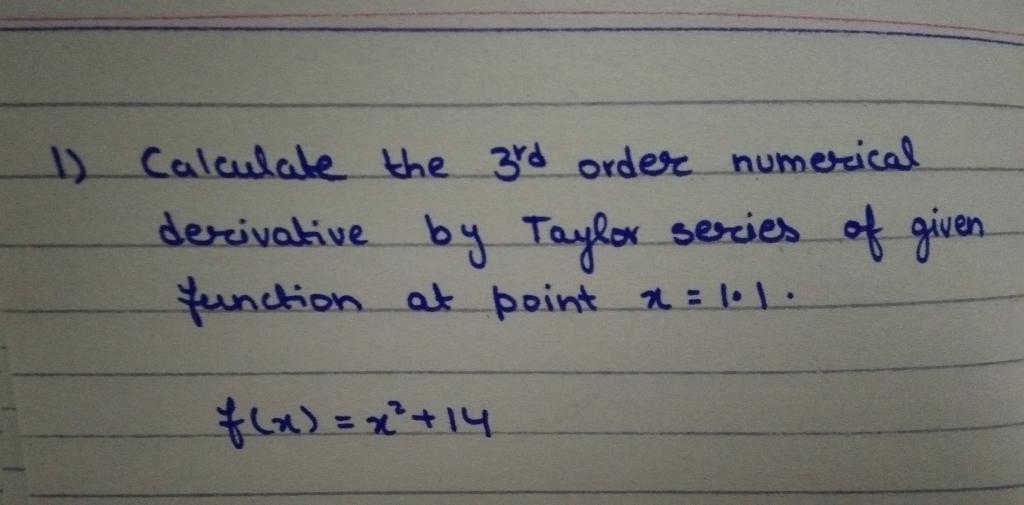 1) Calculate the 3rd order numerical
derivative by Taylor series of given
function at point x = 1.1.
f(x) = x² + 14